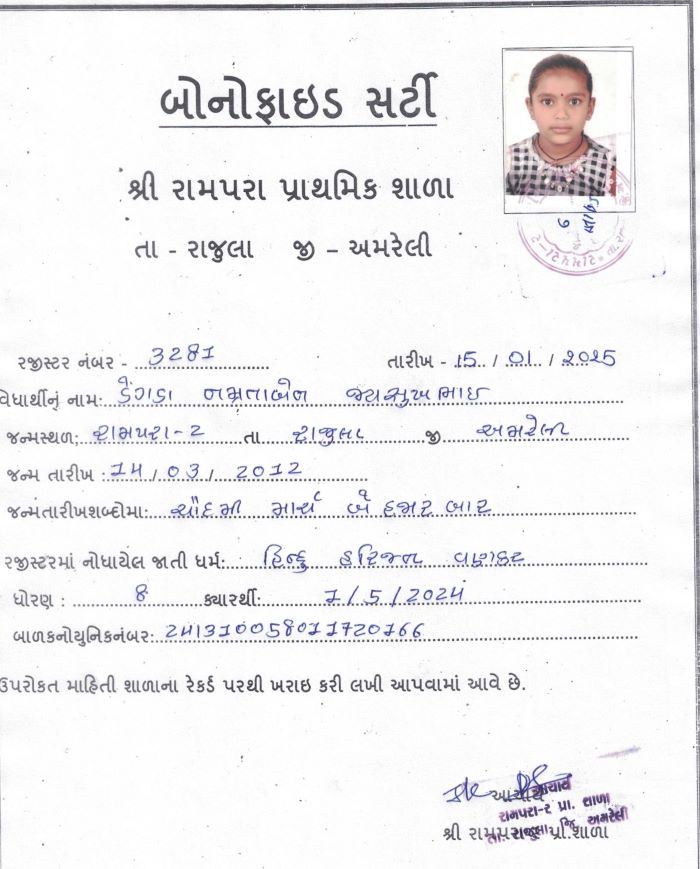 બોનોફાઇડ સર્ટી
શ્રી રામપરા પ્રાથમિક શાળા
તા - રાજુલા જી – અમરેલી
રજીસ્ટર નંબર - 3281 તારીખ - 15 / 01 / 2025
વેધાર્થીનું નામ: નમ્રતાબેન જયસુખભાઇ
જન્મસ્થળ: રામપરા-2 તા રાજુલા જી. અમરેલી
જન્મ તારીખ : 14 / 03 / 2012
જન્મતારીખશબ્દોમા: ચૌદમી માર્ચ બે હજાર બાર
રજીસ્ટરમાં નોધાયેલ જાતી ધર્મ: હિન્દુ હરિજન વણકર
ધોરણ : 8 ક્યારથી: 1/5/2024
બાળકનોયુનિકનંબર: 241310058011720166
ઉપરોકત માહિતી શાળાના રેકર્ડ પરથી ખરાઇ કરી લખી આપવામાં આવે છે.
આચાર્ય
રામપરા-૨ પ્રા. શાળા
તા. રાજુલા જિ. અમરેલી
શ્રી રામપરા પ્રા.શાળા